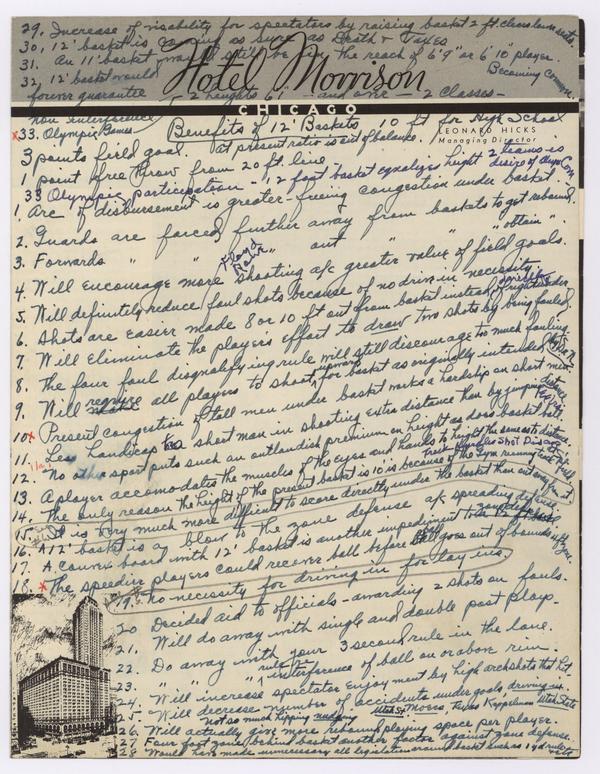 29. Increase of visability for spectators by raising basket 2 ft. clears lawn seats.
30. 12' basket is as sure as Death & Taxes
31. An 11' basket would still be in the reach of 6'9" or 6'10" player.
Becoming Common.
32. 12' basket would
forever guarantee - 2 heights 6' - and over - 2 classes -
non interference
Hotel Morrison
CHICAGO
LEONARD HICKS
Managing Director
x 33. Olympic Games
Benefits of 12' Baskets 10 ft for High School
3 points field goal. at present ratio is out of balance.
1 point free throw from 20 ft. line 2 teams is
33 Olympic participation - 12 foot basket equalizes height desire of Olym Com.
1. Arc of disbursement is greater - freeing congestion under basket.
2. Guards are forced further away from baskets to get rebound.
3. Forwards " " " out " " " obtain " .
Floyd
4. Will encourage more shooting a/c greater value of field goals.
5. Will definitely reduce foul shots because of no drive in necessity.
6. Shots are easier made 8 or 10 ft out from basket instead of right under
7. Will eliminate the players effort to draw two shots by being fouled.
8. The four foul disqualifying rule will still discourage too much fouling.
9. Will require all players to shoot upward for basket as originally intended
10 x Present congestion of tall men under basket works a hardship on short men
11. Less handicap to short man in shooting extra distance than by jumping
12. No other sport puts such an outlandish premium on height as does basket ball.
13. A player accomodates the muscles of the eyes and hands to height the same as to distance.
Track Hurdles Shot Discus
14. The only reason the height of the present basket is 10 is because of the gym running track
15. It is very much more difficult to score directly under the basket than out away from it
16. A 12' basket is a blow to the zone defense a/c spreading defense.
17. A convex board with 12' basket is another impediment to
18. x The speedier players could recover ball before ball goes out of bounds
19. No necessity for driving in for lay ins.
20 Decided aid to officials - awarding 2 shots on fouls.
21. Will do away with single and double post plays.
22. Do away with your 3 second rule in the lane.
23. " " " interference of ball on or above rim.
24. Will increase spectator enjoyment by high arch shots that hit.
25. Will decrease number of accidents under goals driving in.
not so much hipping nudging Utah St Moers, Texas Kappelman Utah State
26. Will actually give more rebound playing space per player.
27 Four foot zone behind basket another factor against zone defense.
28 Would have made unnecessary all legislation around basket such as 3 yd rule etc